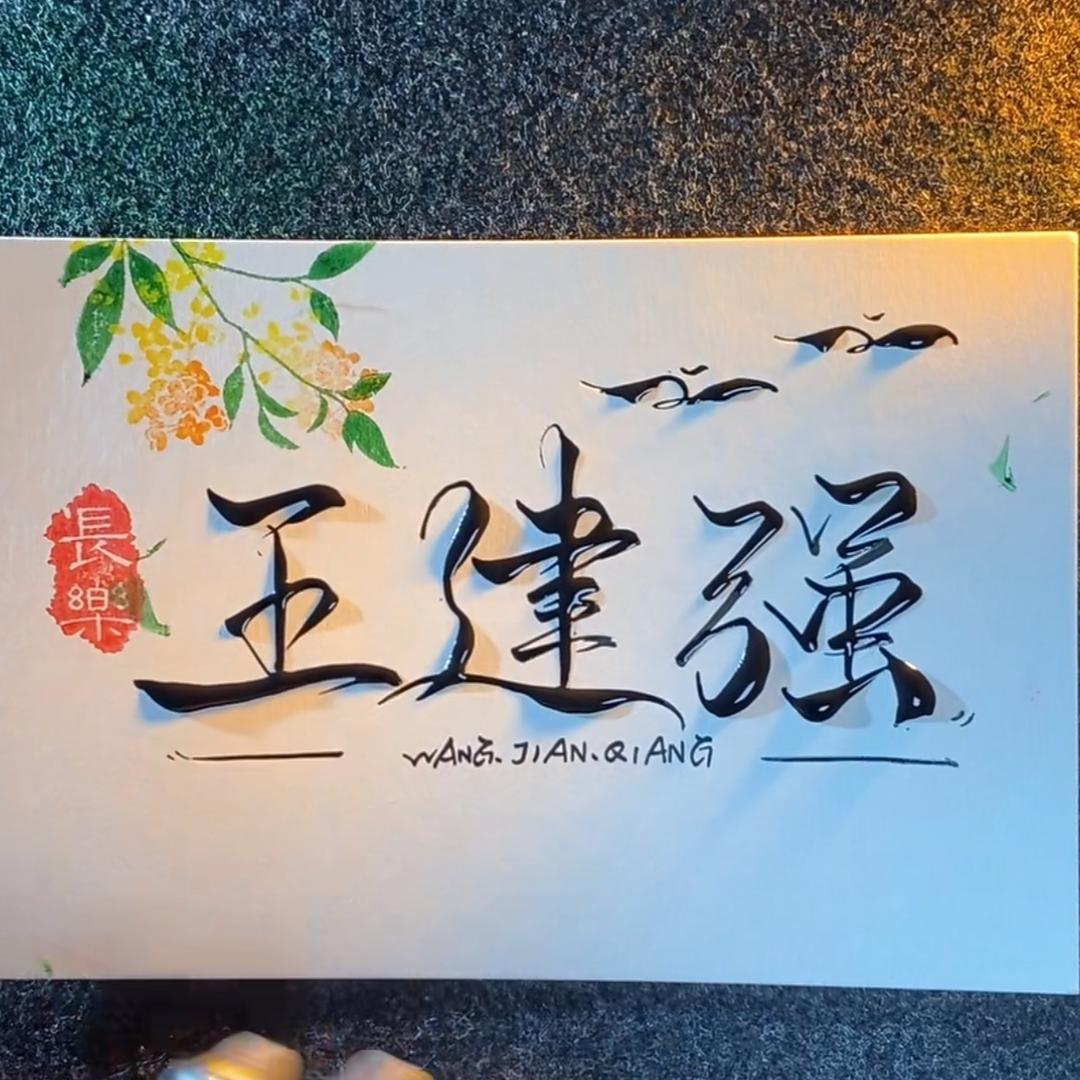 長樂
王建强
WANG.JIAN.QIANG